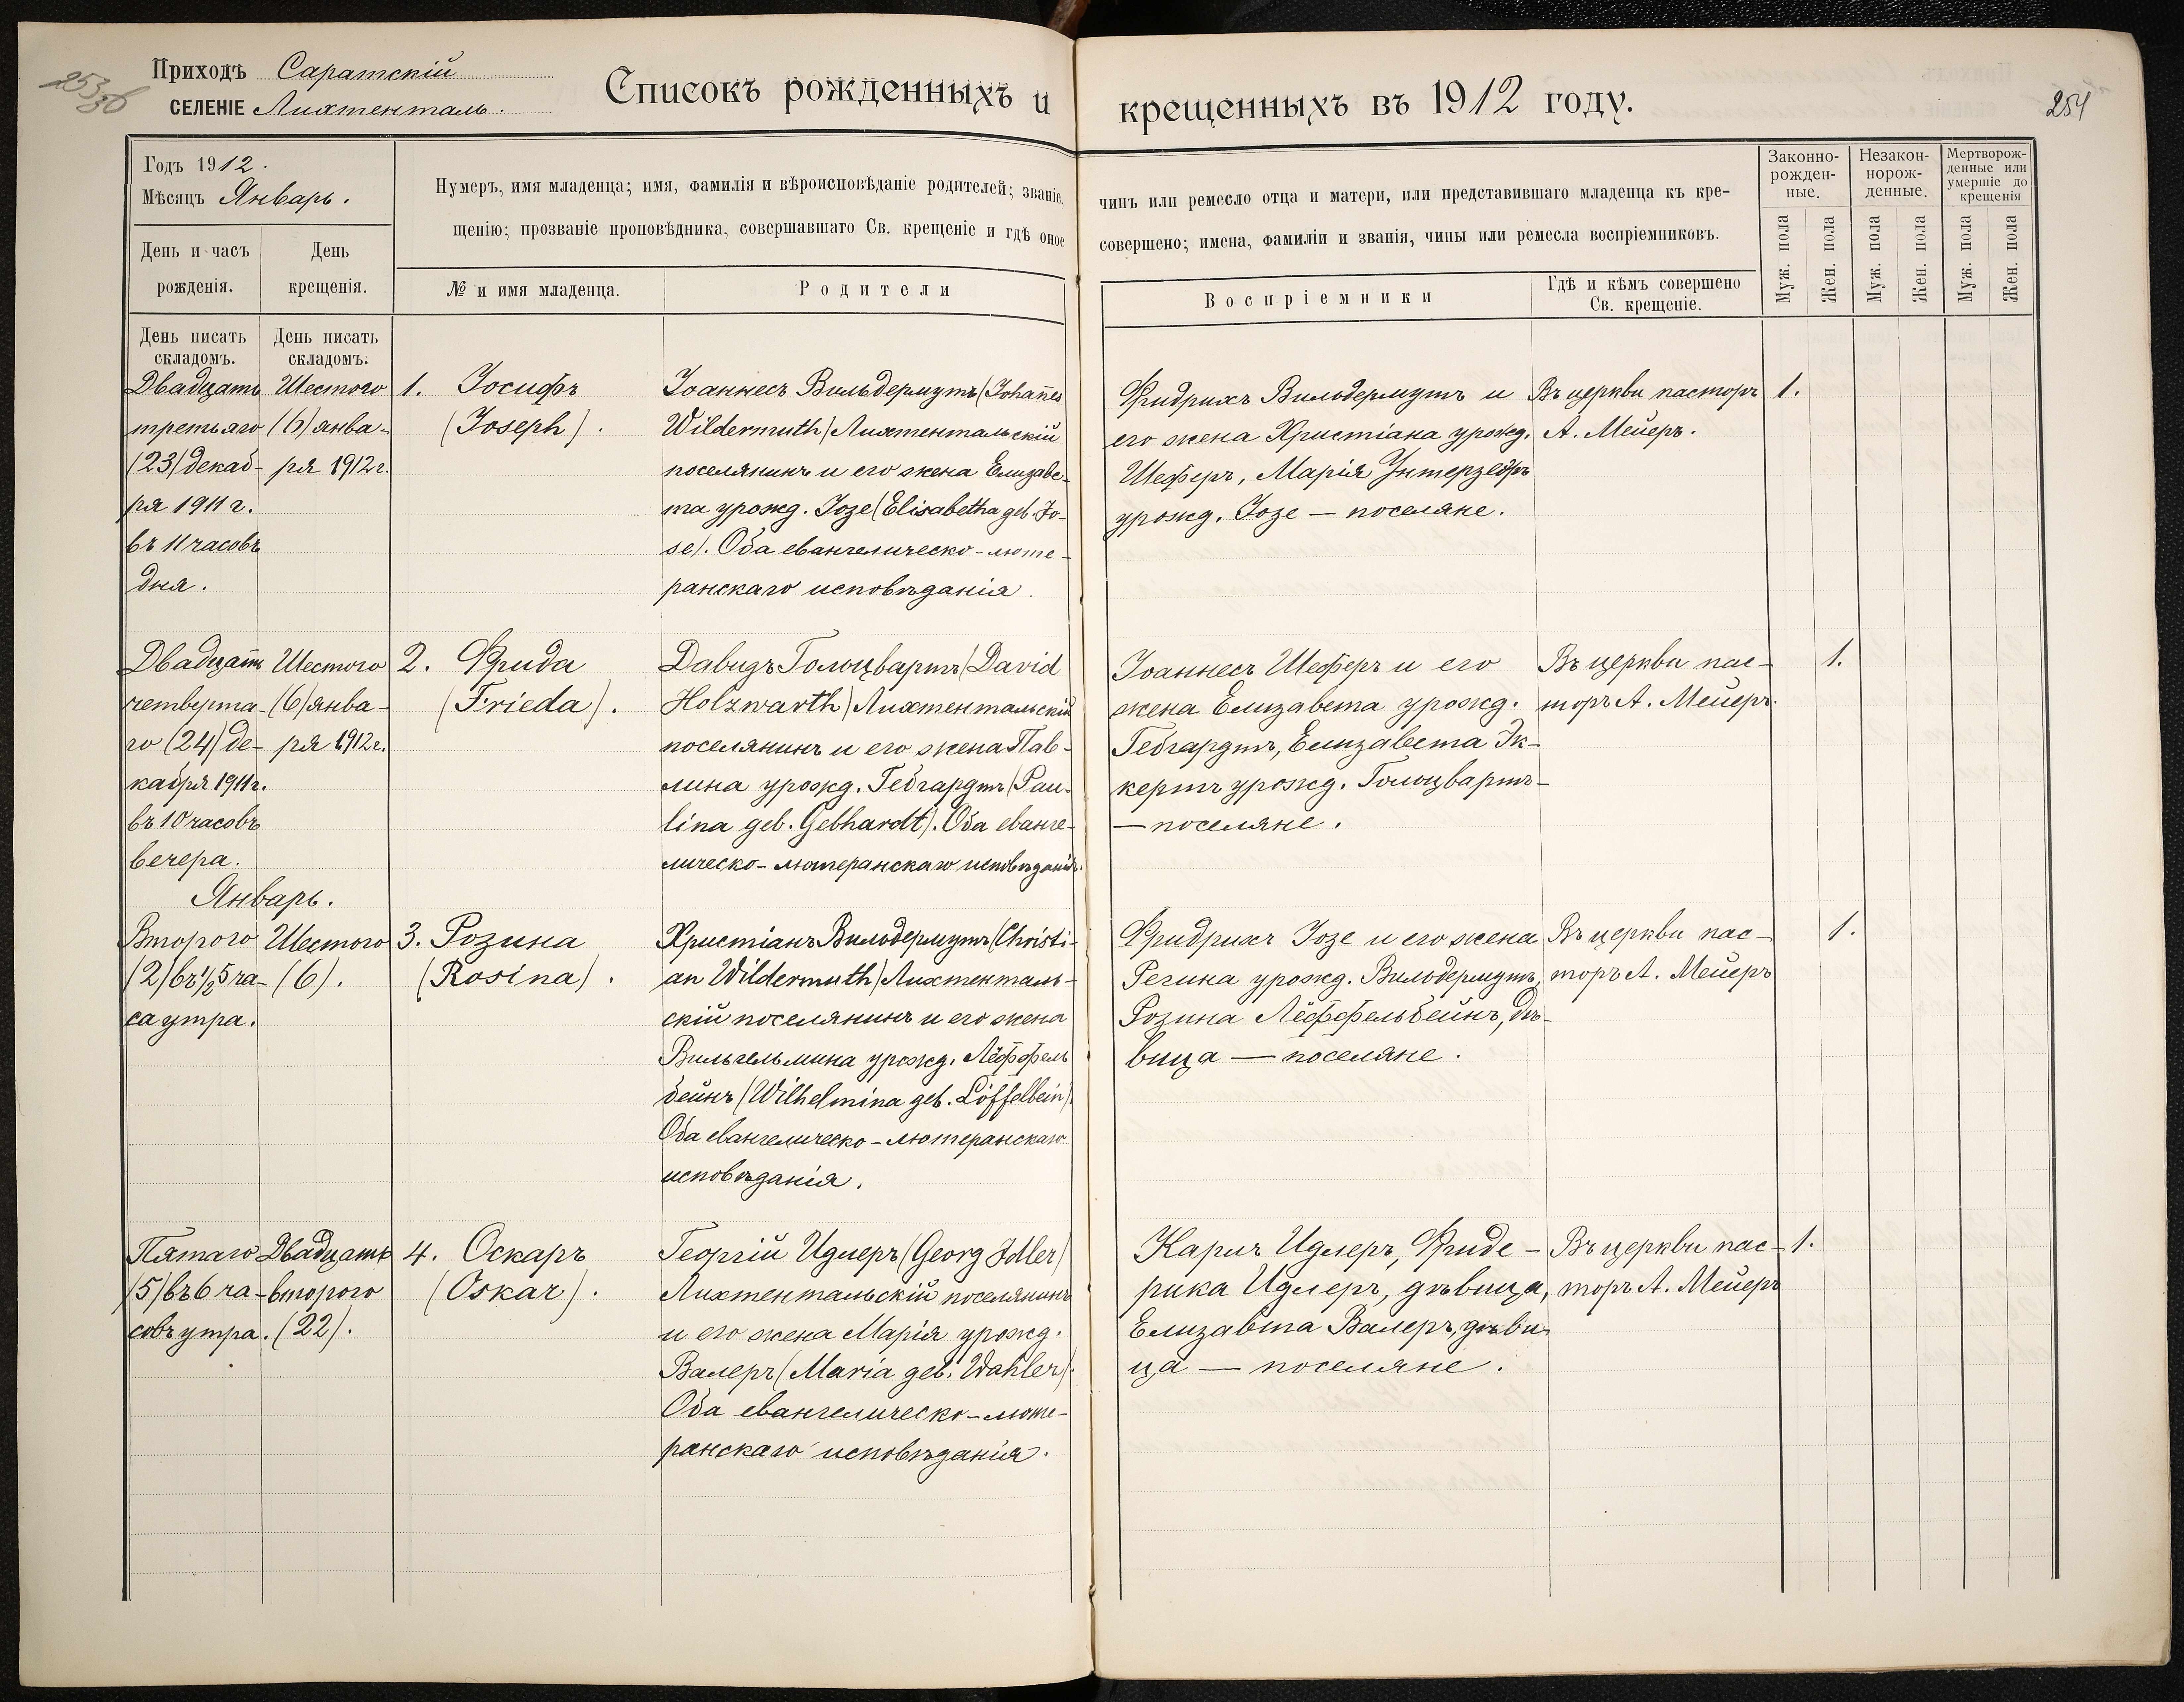 253 об
Приходъ Саратскiй
СЕЛЕНIЕ Лихтенталь.
Списокъ рожденныхъ и крещенныхъ въ 1912 году.
254
Годъ 1912.
Мѣсяцъ Январь.
День и часъ рожденiя.
День крещенiя.
Нумеръ, имя младенца; имя, фамилiя и вѣроисповѣданiе родителей; званiе, чинъ или ремесло отца и матери, или представившаго младенца къ кре-
щенiю; прозванiе проповѣдника, совершавшаго Св. крещенiе и гдѣ оное совершено; имена, фамилiи и званiя, чины или ремесла воспрiемниковъ.
№ и имя младенца.
Родители
Воспрiемники
Гдѣ и кѣмъ совершено
Св. крещенiе.
Законно-
рожден-
ные.
Незакон-
норож-
денные.
Мертворож-
денные или
умершiе до
крещенiя
Муж. пола
Жен. пола
Муж. пола
Жен. пола
Муж. пола
Жен. пола
День писать
складомъ.
День писать
складомъ.
Двадцать
третьяго
(23) декаб-
ря 1911 г.
въ 11 часовъ
дня.
Шестого
(6) янва-
ря 1912 г.
1. Iосифъ
(Joseph).
Iоаннесъ Вильдермутъ (Johañes
Wildermuth) Лихтентальскiй
поселянинъ и его жена Елизаве-
та урожд. Iозе (Elisabetha geb. Jo-
se). Оба евангелическо-люте-
ранскаго исповѣданiя.
Фридрихъ Вильдермутъ и
его жена Христiана урожд.
Шеферъ, Марiя Унтерзеръ
урожд. Iозе — поселяне.
Въ церкви пасторъ
А. Мейеръ.
1.
Двадцать
четверта-
го (24) де-
кабря 1911 г.
въ 10 часовъ
вечера.
Шестого
(6) янва-
ря 1912 г.
2. Фрида
(Frieda).
Давидъ Гольцвартъ (David
Holzwarth) Лихтентальскiй
поселянинъ и его жена Пав-
лина урожд. Гебгардтъ (Pau-
lina geb. Gebhardt). Оба еванге-
лическо-лютеранскаго исповѣданiя.
Iоаннесъ Шеферъ и его
жена Елизавета урожд.
Гебгардтъ, Елизавета Эк-
кертъ урожд. Гольцвартъ-
— поселяне.
Въ церкви пас-
торъ А. Мейеръ.
1.
Январь.
Второго
(2) въ ½5 ча-
са утра.
Шестого
(6).
3. Розина
(Rosina).
Христiанъ Вильдермутъ (Christi-
an Wildermuth) Лихтенталь-
скiй поселянинъ и его жена
Вильгельмина урожд. Лёффель
бейнъ (Wilhelmina geb. Löffelbein).
Оба евангелическо-лютеранскаго
исповѣданiя.
Фридрихъ Iозе и его жена
Регина урожд. Вильдермутъ,
Розина Лёффельбейнъ, дѣ-
вица — поселяне.
Въ церкви пас-
торъ А. Мейеръ
1.
Пятаго
(5) въ 6 ча-
совъ утра.
Двадцать
второго
(22).
4. Оскаръ
(Oskar).
Георгiй Идлеръ (Georg Idler)
Лихтентальскiй поселянинъ
и его жена Марiя урожд.
Валеръ (Maria geb. Wahler).
Оба евангелическо-люте-
ранскаго исповѣданiя.
Карлъ Идлеръ, Фриде-
рика Идлеръ, дѣвица,
Елизавта Валеръ, дѣви-
ца — поселяне.
Въ церкви пас-
торъ А. Мейеръ
1.